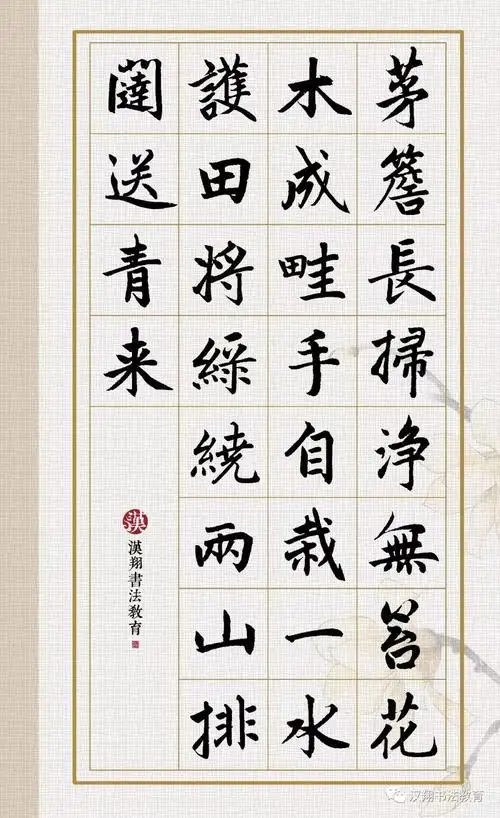 茅簷長掃浄無苔花
木成畦手自栽一水
護田將綠繞兩山排
闥送青来
漢
漢翔書法教育
汉翔书法教育